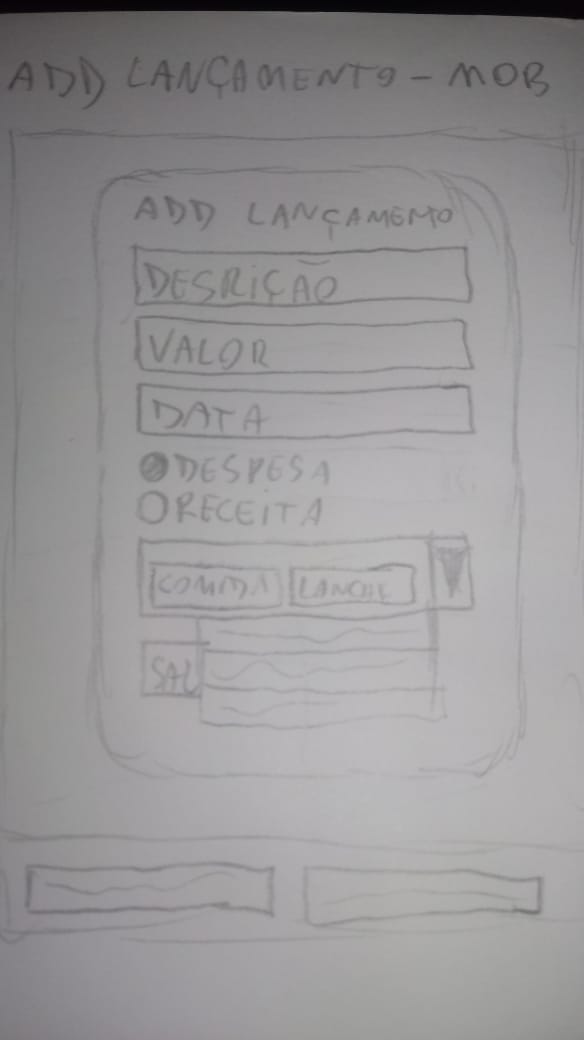 ADD LANÇAMENTO - MOB
ADD LANÇAMENTO
DESRIÇÃO
VALOR
DATA
DESPESA
RECEITA
COMIDA LANCHE
SAL